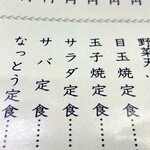 野菜天、
目玉焼定食
玉子焼定食
サラダ定食
サバ定食
なっとう定食